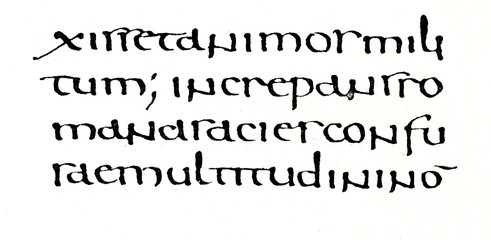 xissetanimosmili
tum; increpansro
manasaciesconfu
saemultitudininō